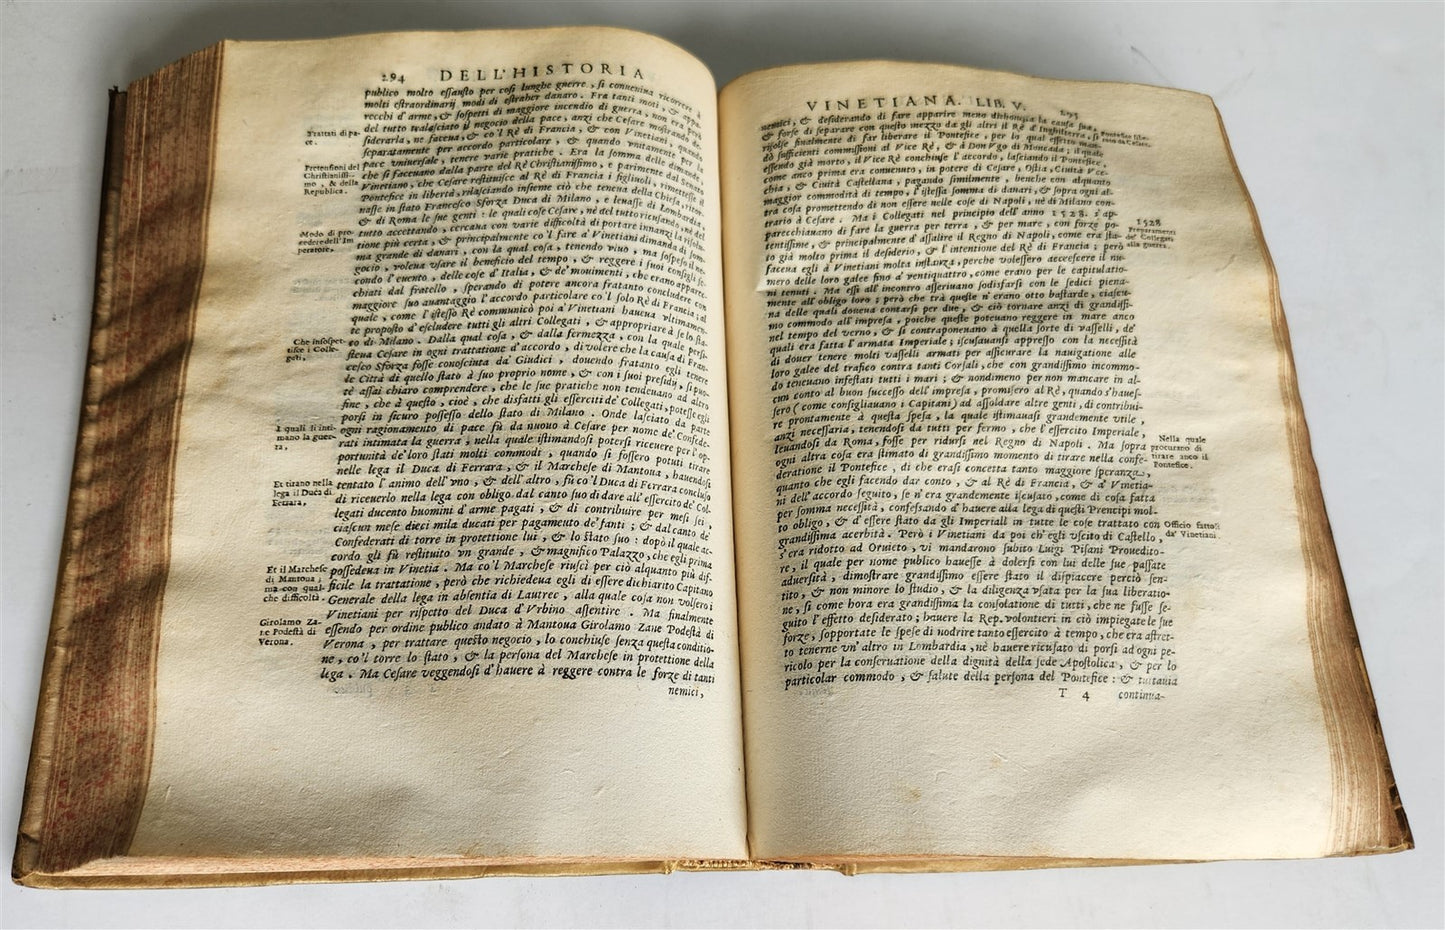 294 DELL'HISTORIA
publico molto essausto per così lunghe guerre, si conueniua ricorrere a
molti estraordinarij modi di estraher danaro. Fra tanti moti, & appa
recchi d'arme, & sospetti di maggiore incendio di guerra, non era però
del tutto tralasciato il negocio della pace, anzi che Cesare mostrando de-
siderarla, ne faceua, & co'l Rè di Francia, & con Vinetiani, quando
separatamente per accordo particolare, & quando vnitamente per la
pace vniuersale, tenere varie pratiche. Era la somma delle dimande,
che si faceuano dalla parte del Rè Christianissimo, e parimente dal Senato
Vinetiano, che Cesare restituisse al Rè di Francia i figliuoli, rimettesse il
Pontefice in libertà, rilasciando insieme ciò che teneua della Chiesa, ritor-
nasse in stato Francesco Sforza Duca di Milano, e leuasse di Lombardia,
& di Roma le sue genti: le quali cose Cesare, nè del tutto ricusando, nè del
tutto accettando, cercaua con varie difficoltà di portare innanzi la risolu-
tione più certa, & principalmente co'l fare a' Vinetiani dimanda di som-
ma grande di danari, con la qual cosa, tenendo viuo, ma sospeso il ne-
gocio, voleua vsare il beneficio del tempo, & reggere i suoi consigli se-
condo l'euento, delle cose d'Italia, & de' mouimenti, che erano apparec-
chiati dal fratello, sperando di potere ancora fratanto concludere con
maggiore suo auantaggio l'accordo particolare co'l solo Rè di Francia; al
quale, come l'istesso Rè communicò poi a Vinetiani haueua vltimamen-
te proposto d'escludere tutti gli altri Collegati, & appropriare à se lo sta-
to di Milano. Dalla qual cosa, & dalla fermezza, con la quale persi-
steua Cesare in ogni trattatione d'accordo, di volere che la causa di Fran-
cesco Sforza fosse conosciuta da' Giudici, douendo fratanto egli tenere
le Città di quello stato à suo proprio nome, & con i suoi presidij, si puo-
tè assai chiaro comprendere, che le sue pratiche non tendeuano ad altro
fine, che à questo, cioè, che disfatti gli esserciti de' Collegati, potesse egli
porsi in sicuro possesso dello stato di Milano. Onde lasciato da parte
ogni ragionamento di pace fù da nuouo à Cesare per nome de' Confede-
rati intimata la guerra, nella quale istimandosi potersi riceuer per l'op-
portunità de' loro stati molti commodi, quando si fossero potuti tirare
nelle lega il Duca di Ferrara, & il Marchese di Mantoua, hauendosi
tentato l'animo dell'vno, & dell'altro, fù co'l Duca di Ferrara concluso
di riceuerlo nella lega con obligo dal canto suo di dare all'essercito de' Col-
legati ducento huomini d'arme pagati, & di contribuire per mesi sei,
ciascun mese dieci mila ducati per pagamento de' fanti; & dal canto de'
Confederati di torre in protettione lui, & lo stato suo: dopò il quale ac-
cordo gli fù restituito vn grande, & magnifico Palazzo, che egli prima
possedeua in Venetia. Ma co'l Marchese riuscì per ciò alquanto più dif-
ficile la trattatione, però che richiedeua egli di essere dichiarito Capitano
Generale della lega in absentia di Lautrec, alla quale cosa non volsero i
Vinetiani per rispetto del Duca d'Vrbino assentire. Ma finalmente
essendo per ordine publico andato à Mantoua Girolamo Zane Podestà di
Verona, per trattare questo negotio, lo conchiuse senza questa conditio-
ne, co'l torre lo stato, & la persona del Marchese in protettione della
lega. Ma Cesare veggendosi d'hauere à reggere contra le forze di tanti
nemici,
Trattati di pa-
ce.
Pretensioni del
Christianissi-
mo, & della
Republica.
Modo di pro-
cedere dell'Im
peratore.
Che insospet-
tisce i Colle-
gati,
I quali li inti-
mano la guer-
ra,
Et tirano nella
lega il Duca di
Ferrara,
Et il Marchese
di Mantoua;
ma con qual-
che difficoltà.
Girolamo Za-
ne Podestà di
Verona.
VINETIANA. LIB. V. 295
nemici, & desiderando di fare apparire meno dishonesta la causa sua,
& forse di separare con questo mezzo da gli altri il Rè d'Inghilterra, si
risolse finalmente di far liberare il Pontefice, per lo qual effetto man-
dò sufficienti commissioni al Vice Rè, & à Don Vgo di Moncada; il quale
essendo già morto, il Vice Rè conchiuse l'accordo, lasciando il Pontefice,
come anco prima era conuenuto, in potere di Cesare, Ostia, Ciuità Vec-
chia, & Ciuità Castellana, pagando similmente, benche con alquanto
maggior commodità di tempo, l'istessa somma di danari, & sopra ogni al-
tra cosa promettendo di non essere nelle cose di Napoli, nè di Milano con-
trario à Cesare. Ma i Collegati nel principio dell'anno 1528. s'ap-
parecchiauano di fare la guerra per terra, & per mare, con forze po-
tentissime, & principalmente d'assalire il Regno di Napoli, come era sta-
to già molto prima il desiderio, & l'intentione del Rè di Francia; però
faceua egli à Vinetiani molta instanza, perche volessero accrescere il nu-
mero delle loro galee fino à ventiquattro, come erano per le capitulatio-
ni tenuti. Ma essi all'incontro asseriuano sodisfarsi con le sedici piena-
mente all'obligo loro; però che trà queste n'erano otto bastarde, ciascu-
na delle quali doueua contarsi per due, & ciò tornare anzi di grandissi-
mo commodo all'impresa, poiche queste poteuano reggere in mare anco
nel tempo del verno, & si contraponeano à quella sorte di vasselli, de'
quali era fatta l'armata Imperiale; iscusauansi appresso con la necessità
di douer tenere molti vasselli armati per assicurare la nauigatione alle
loro galee del trafico contra tanti Corsali, che con grandissimo incommo-
do teneuano infestati tutti i mari; & nondimeno per non mancare in al-
cun conto al buon successo dell'impresa, promisero al Rè, quando s'haues-
sero (come consigliauano i Capitani) ad assoldare altre genti, di contribui-
re prontamente à questa spesa, la quale istimauasi grandemente vtile,
anzi necessaria, tenendosi da tutti per fermo, che l'essercito Imperiale,
leuandosi da Roma, fosse per ridursi nel Regno di Napoli. Ma sopra
ogni altra cosa era stimato di grandissimo momento di tirare nella confe-
deratione il Pontefice, di che erasi concetta tanto maggiore speranza,
quanto che egli facendo dar conto, & al Rè di Francia, & a' Vinetia-
ni dell'accordo seguito, se n'era grandemente iscusato, come di cosa fatta
per somma necessità, confessando d'hauere alla lega di questi Prencipi mol-
to obligo, & d'essere stato da gli Imperiali in tutte le cose trattato con
grandissima acerbità. Però i Vinetiani da poi ch'egli vscito di Castello,
s'era ridotto ad Oruieto, vi mandarono subito Luigi Pisani Proueditο-
re, il quale per nome publico hauesse à dolersi con lui delle sue passate
aduersità, dimostrare grandissimo essere stato il dispiacere perciò sen-
tito, & non minore lo studio, & la diligenza vsata per la sua liberatio-
ne, si come hora era grandissima la consolatione di tutti, che ne fusse se-
guito l'effetto desiderato; hauere la Rep. volontieri in ciò impiegate le sue
forze, sopportate le spese di nodrire tanto essercito à tempo, che era astret-
to tenerne vn'altro in Lombardia, nè hauere ricusato di porsi ad ogni pe-
ricolo per la conseruatione della dignità della sede Apostolica, & per lo
particolar commodo, & salute della persona del Pontefice: & tuttauia
T 4 continua-
Pontefice libe-
rato da Cesare.
1528
Preparamenti
de' Collegati
alla guerra.
Nella quale
procurano di
tirare anco il
Pontefice.
Officio fattoli
da' Vinetiani.